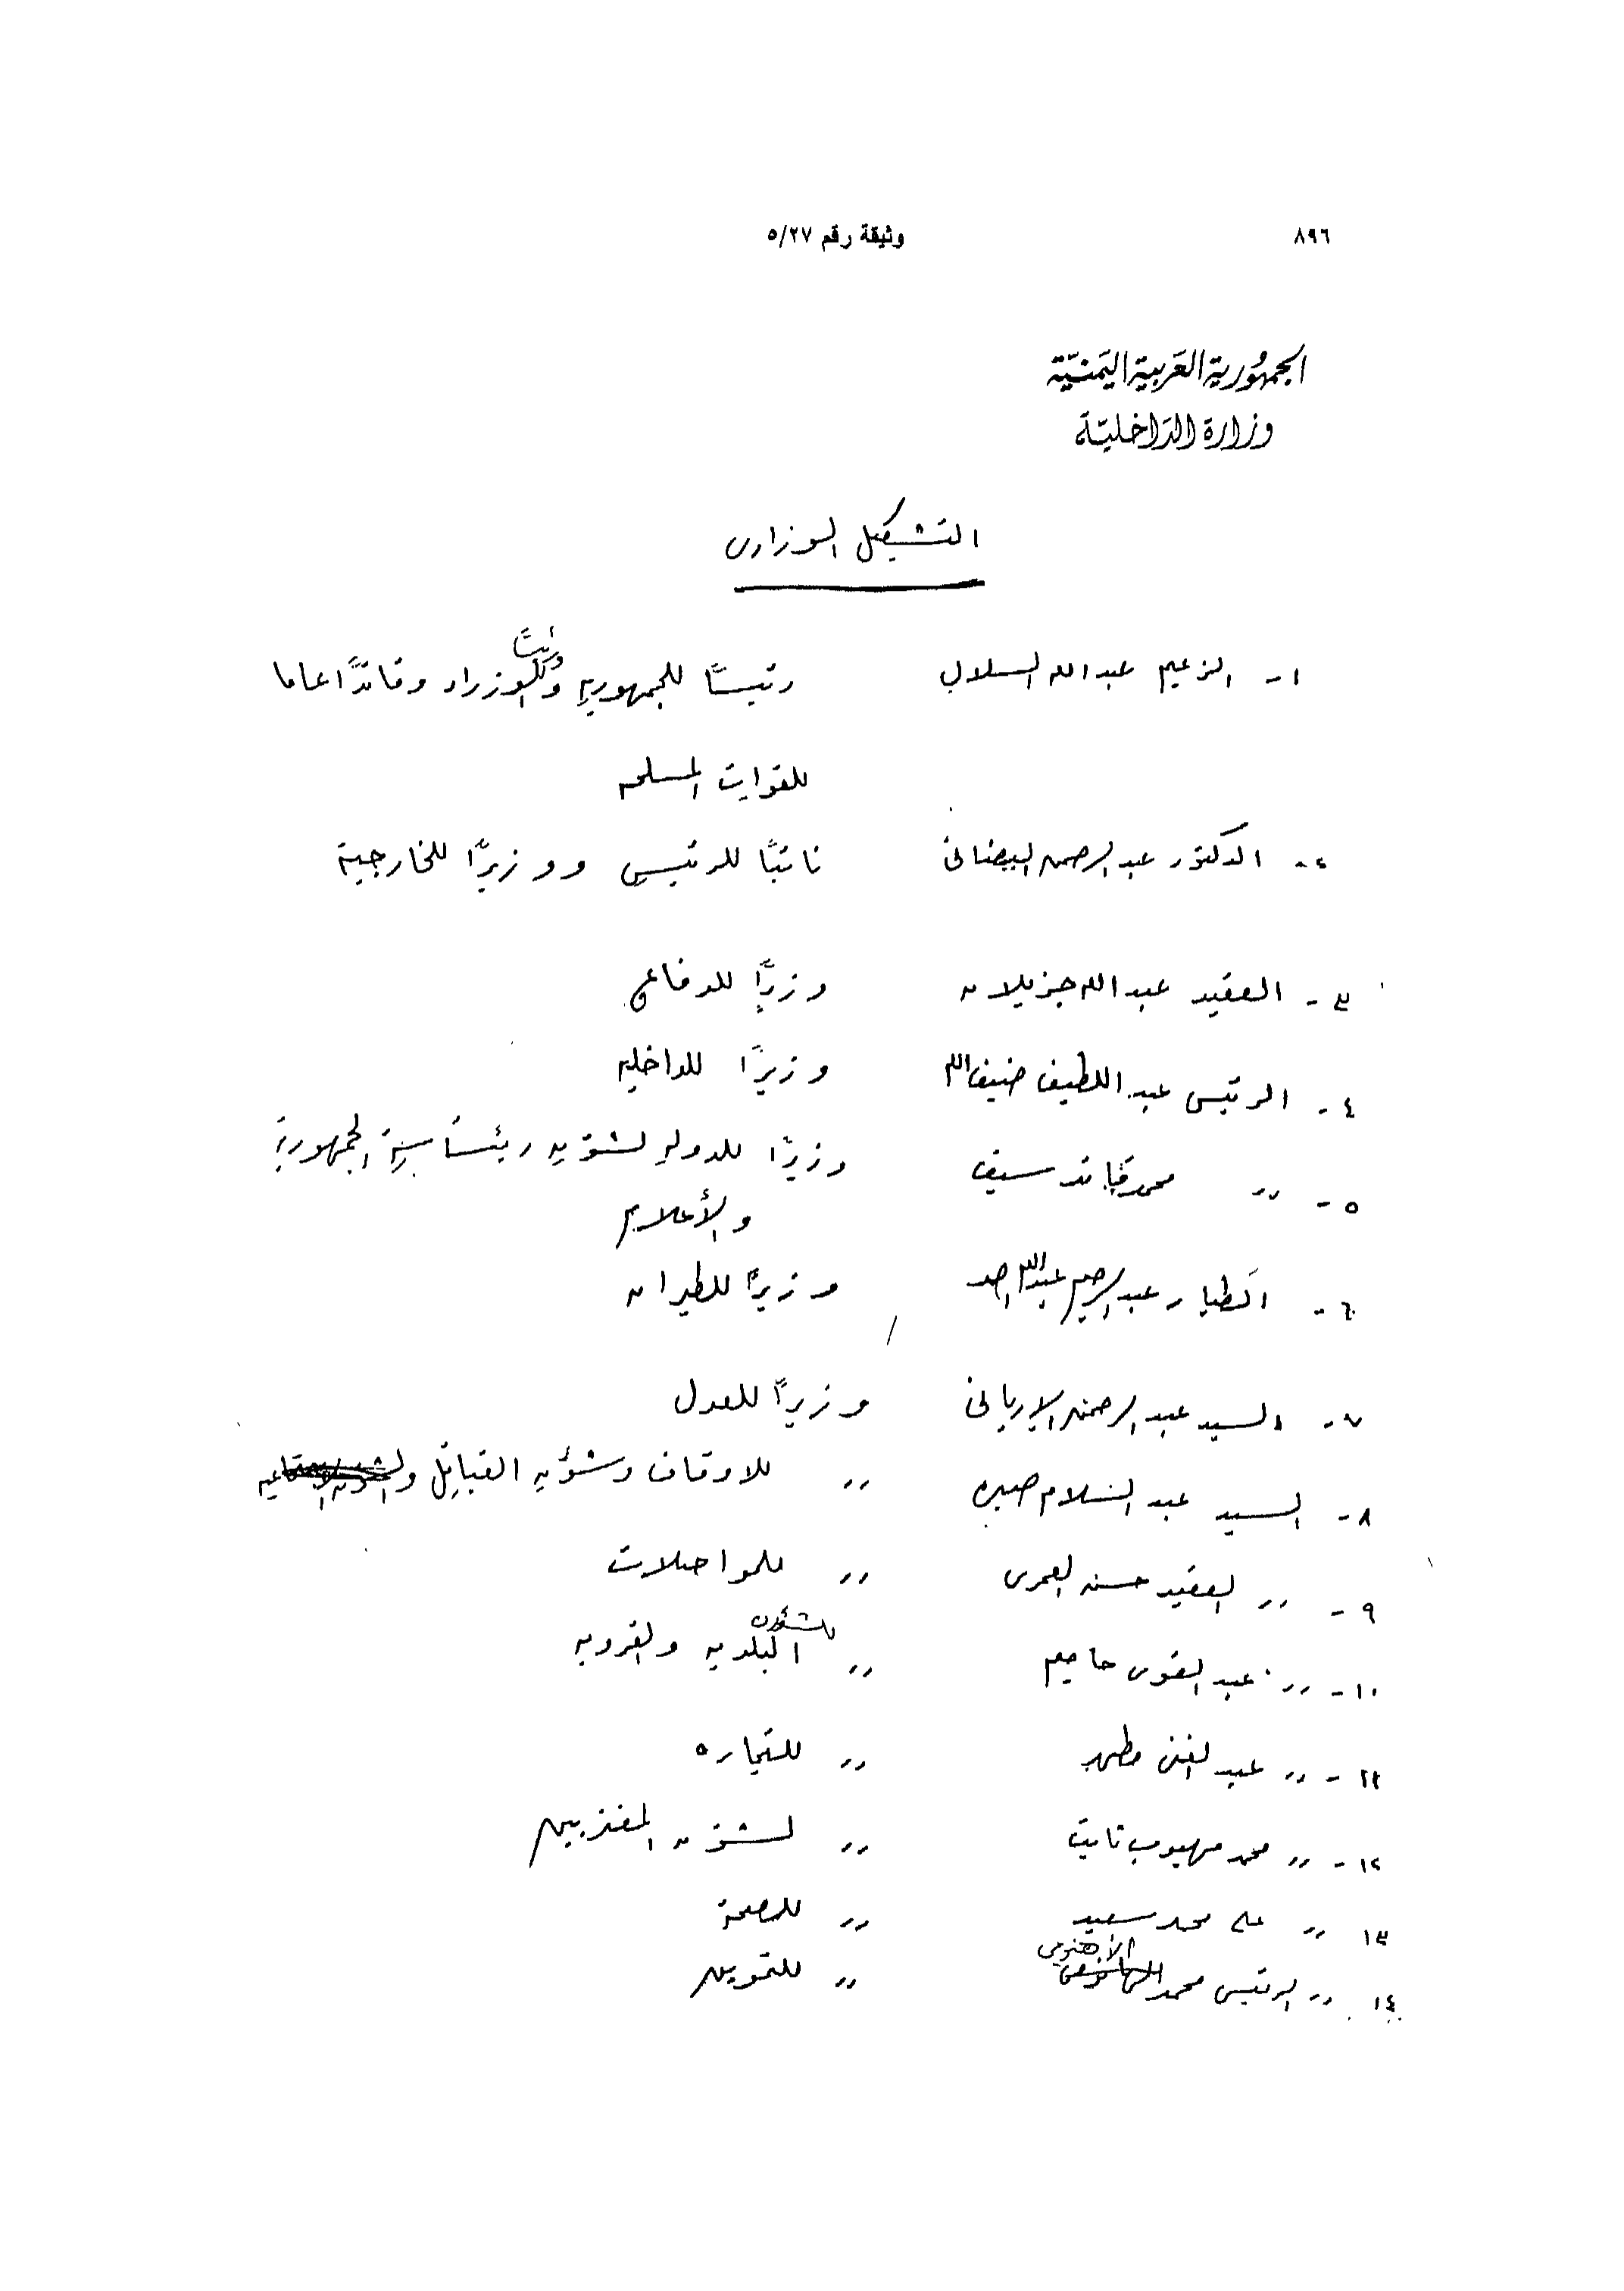 ٨٩٦ وثيقة رقم ٥/٢٧
الجمهورية العربية اليمنية
وزارة الداخلية
التشكيل الوزارى
١- الزعيم عبدالله السلال رئيساً للجمهورية ورئيساً للوزراء وقائداً عاما
للقوات المسلحه
٢- الدكتور عبدالرحمن البيضانى نائباً للرئيس ووزيراً للخارجية
٣- العقيد عبدالله جزيلان وزيراً للدفاع
٤- الرئيس عبد اللطيف ضيف الله وزيراً للداخليه
٥- ،، محمد قائد سيف وزيراً للدوله لشؤن رئاسة الجمهورية
والأعلام
٦- الطيار عبدالرحيم عبدالله وزيراً للطيران
٧- السيد عبدالرحمن الإريانى وزيراً للعدل
٨- السيد عبد السلام صبره ،، للاوقاف وشؤن القبائل
٩- ،، العقيد حسن العمرى ،، للمواصلات
١٠- ،، عبد القوى حاميم ،، للشؤون البلديه والقرويه
١١- ،، عبد الغنى مطهر ،، للتجاره
١٢- ،، محمد مهيوب ثابت ،، لشؤن المغتربين
١٣ ،، على محمد سعيد ،، للصحة
١٤ ،، الرئيس محمد الأهنومي ،، للتموين